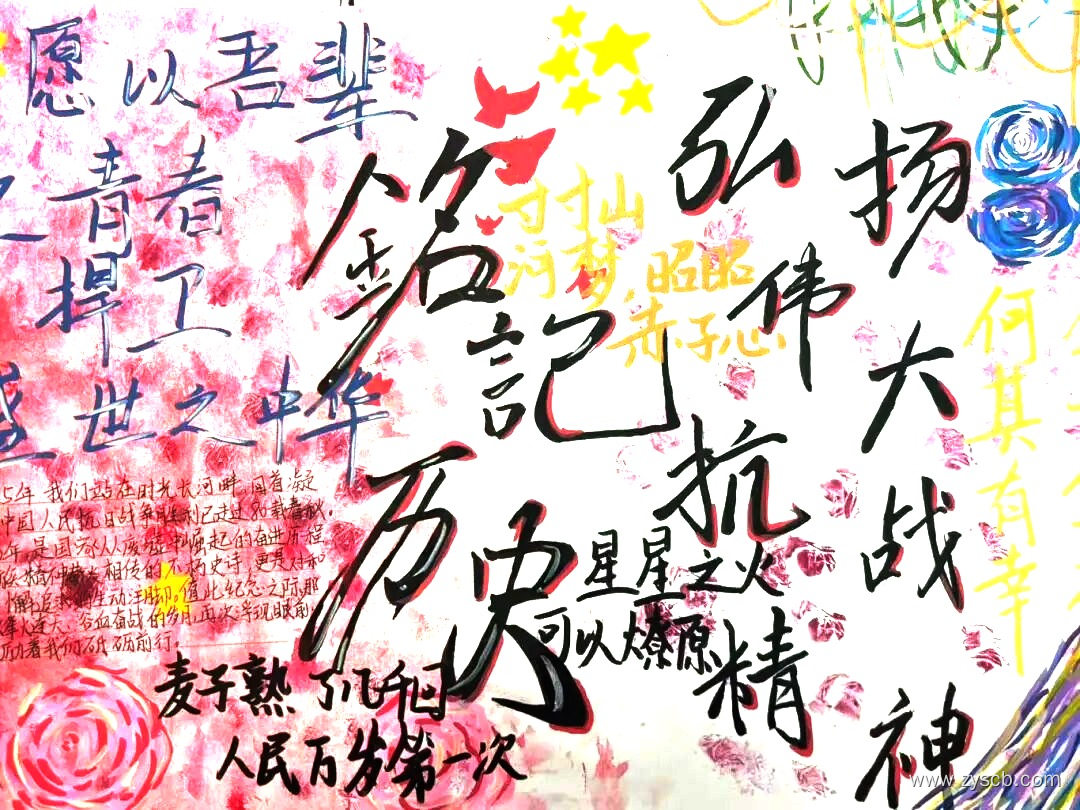 愿以吾辈
之青春
捍卫
盛世之中华
銘記
历史
弘扬
伟大
抗战
精神
寸寸山
河梦,昭昭
赤子心
何其有幸
星星之火
可以燎原
5年 我们站在时光长河畔 回首凝
中国人民抗日战争胜利已走过80载春秋.
年,是国家从废墟中崛起的奋进历程
相传的不朽史诗 更是对和
生动注脚。值此纪念之际,那
烽火连天、浴血奋战的岁月,再次浮现眼前,
励着我们砥砺前行.
麦子熟了几千回
人民万岁第一次
www.zyscb.com